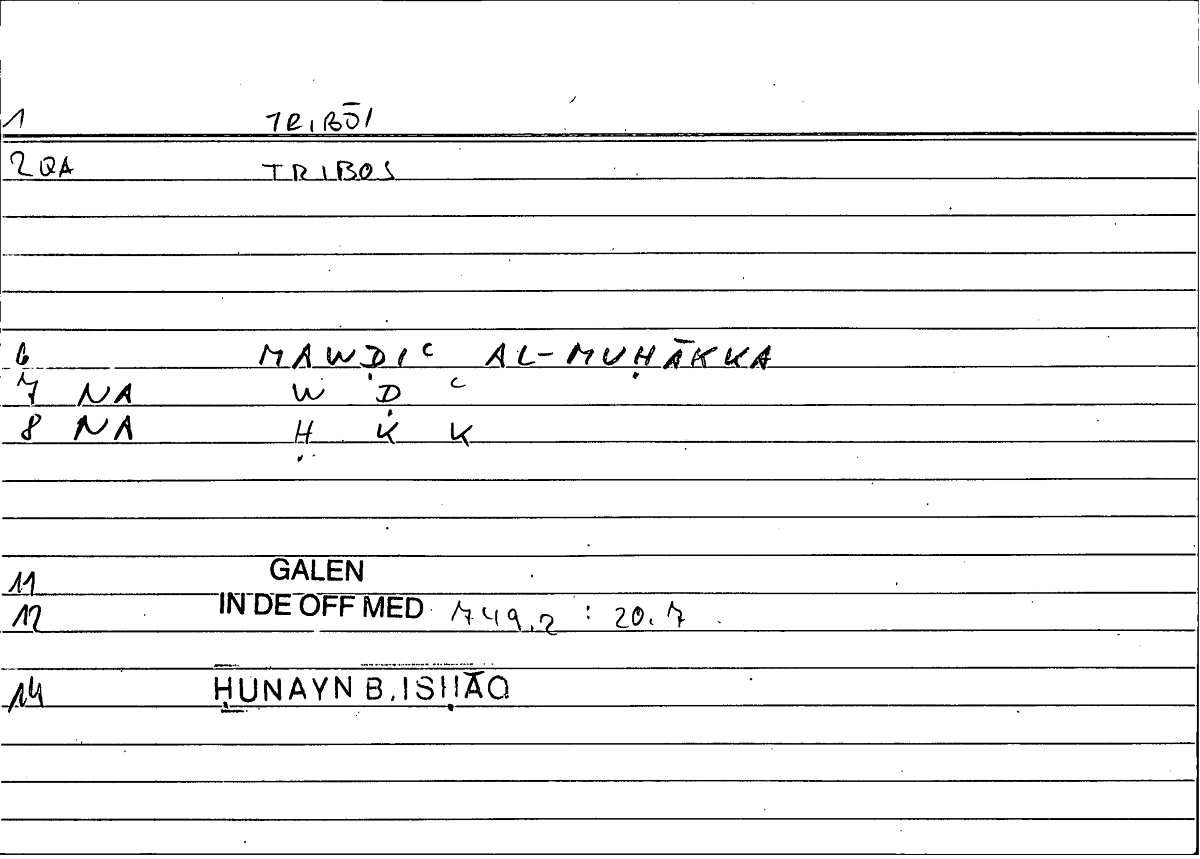 1 TRIBŌI
2 QA TRIBOS
6 MAWḌIʿ AL-MUḤĀKKA
7 NA W Ḍ ʿ
8 NA Ḥ K K
11 GALEN
12 IN DE OFF MED 749,2 : 20.7
14 ḤUNAYN B. ISḤĀQ